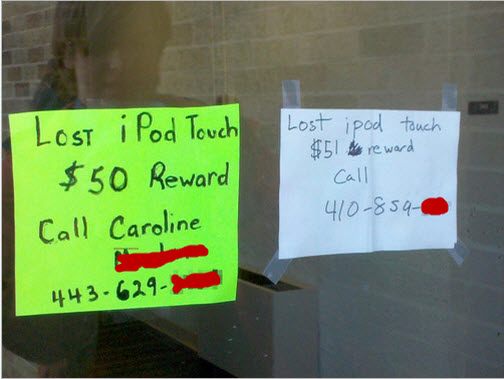 Lost iPod Touch
$50 Reward
Call Caroline
443-629-
Lost ipod touch
$51 reward
Call
410-859-